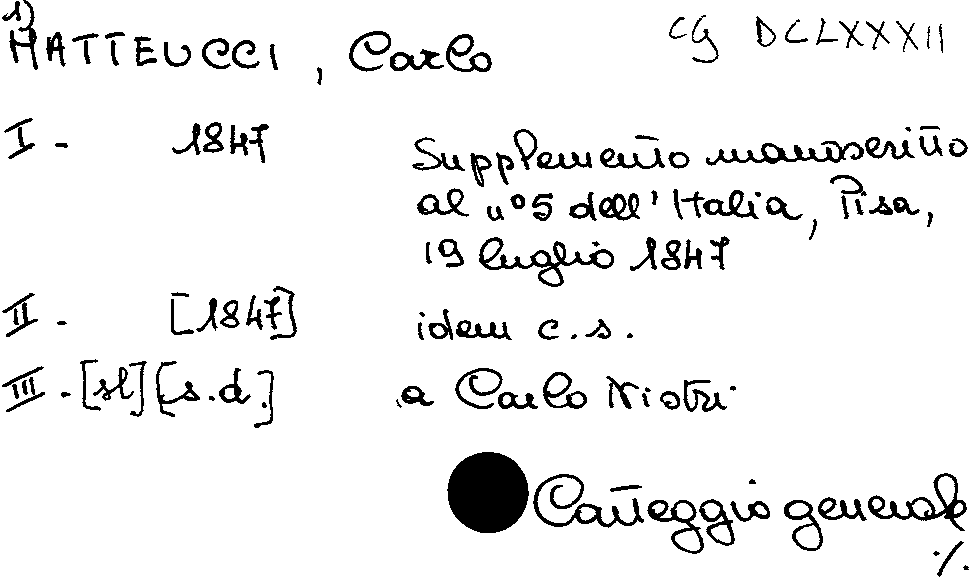 1)
MATTEUCCI, Carlo CG DCLXXXII
I - 1847 Supplemento manoscritto
al n° 5 dell'Italia, Pisa,
19 luglio 1847
II - [1847] idem c.s.
III - [sl] [s.d.] a Carlo Nistri
Carteggio generale
./.